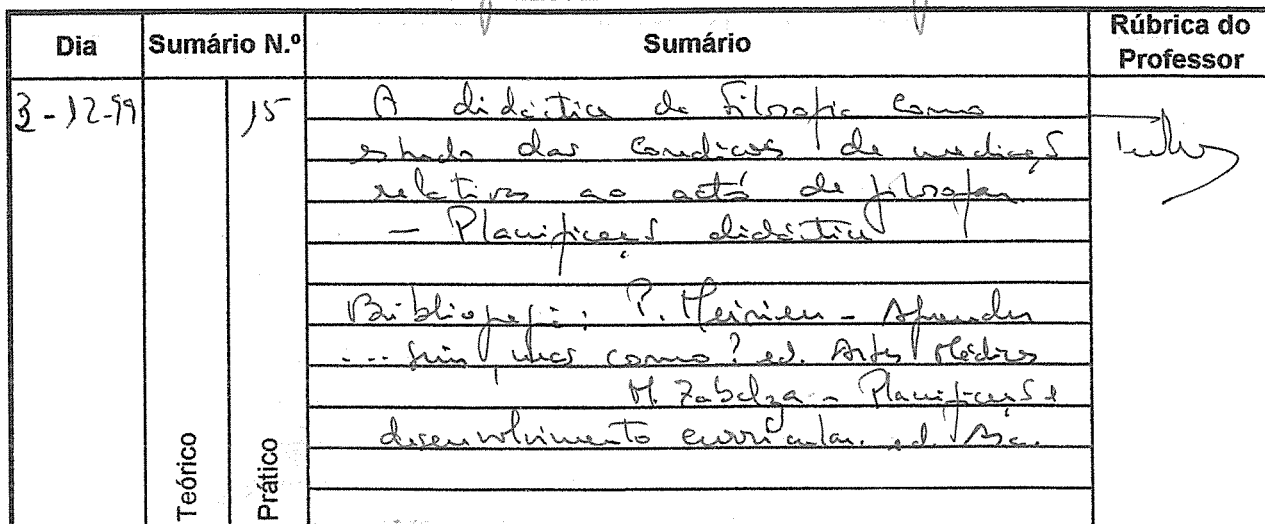 Dia Sumário N.º Sumário Rúbrica do Professor
3-12-99 15 A didáctica da Filosofia como
estudo das condições de mediação
relativas ao acto de filosofar
— Planificação didáctica
Bibliografia: P. Meirieu - Aprender
... sim, mas como? ed. Artes Médicas
M. Zabalza - Planificação e
desenvolvimento curricular. ed. Asa.
Teórico
Prático